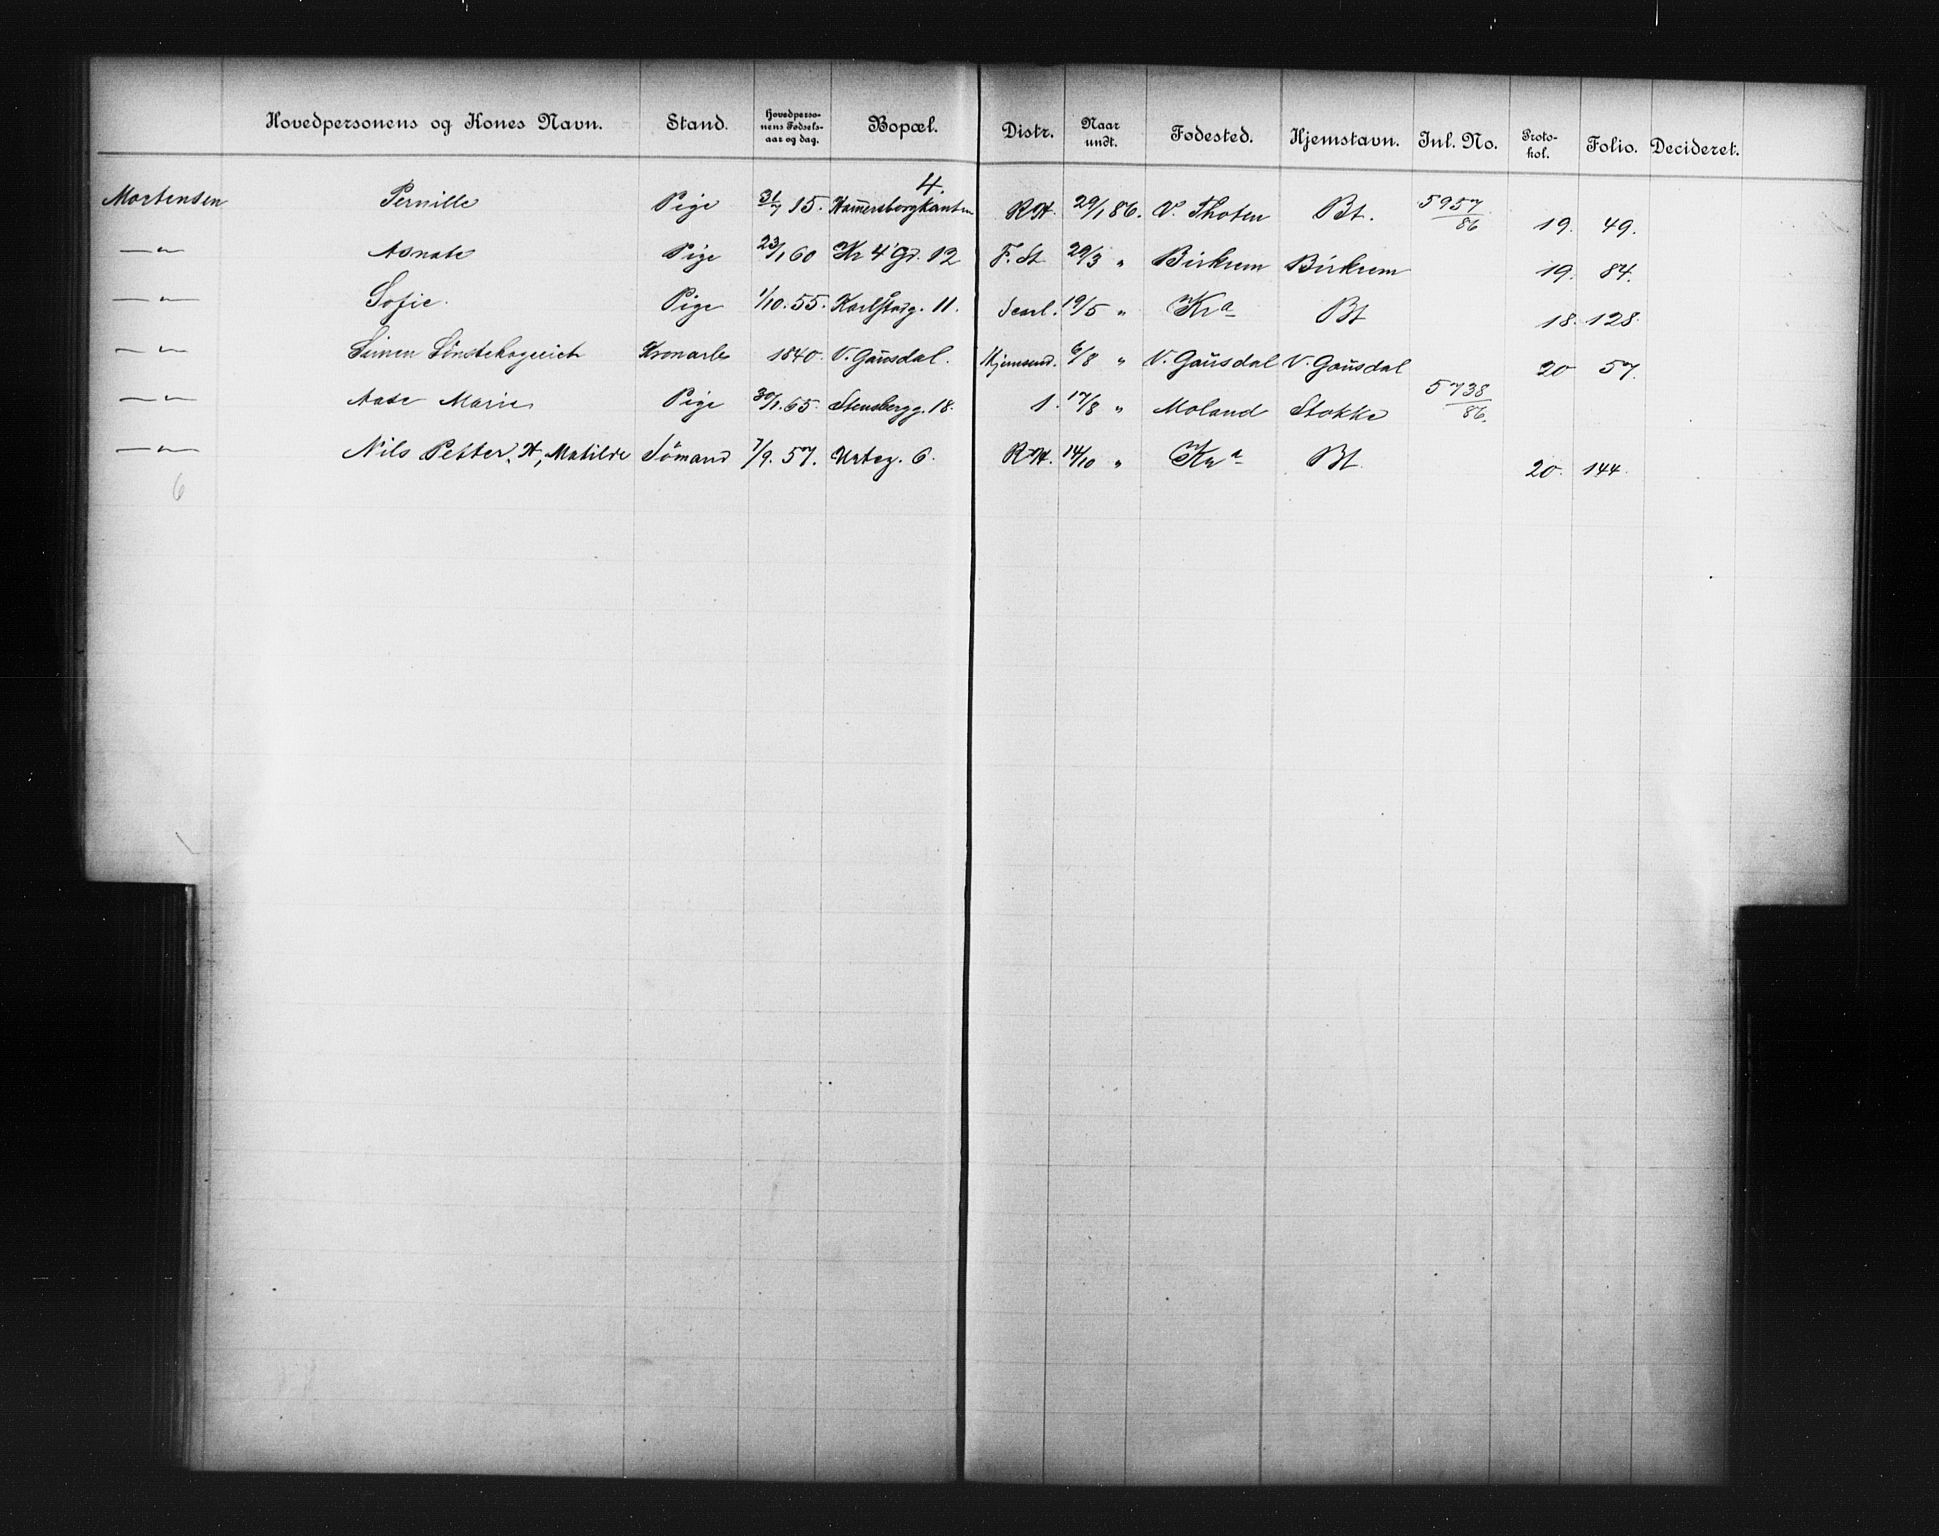 Hovedpersonens og Kones Navn. Stand. Hovedpersonens Fødselsaar og dag. Bopæl. Distr. Naar undt. Fødested. Hjemstavn. Inl. No. Protokol. Folio. Decideret.
Mortensen Pernille Pige 31/7 15. Hammersborgkanten 4. RH. 29/1 86. V. Thoten Bt. 5957/86 19. 49.
—"— Asnate Pige 23/1 60 Kr 4 Gd. 12 F. St. 29/3 " Birkrem Birkrem 19. 84.
—"— Sofie. Pige 1/10. 55. Karlstadg. 11. 19/5 " Kra Bt 18. 128.
—"— Simen Kronarb 1840. V. Gausdal. Hjemsend. 6/8 " V. Gausdal V. Gausdal 20 57.
—"— Aase Marie Pige 30/1. 65. Stensbergg. 18. 1. 17/8 " Moland Stokke 5738/86.
—"— Nils Petter, H, Matilde Sømand 7/9. 57. Urteg. 6. RH. 14/10 " Kra Bt. 20. 144.
6